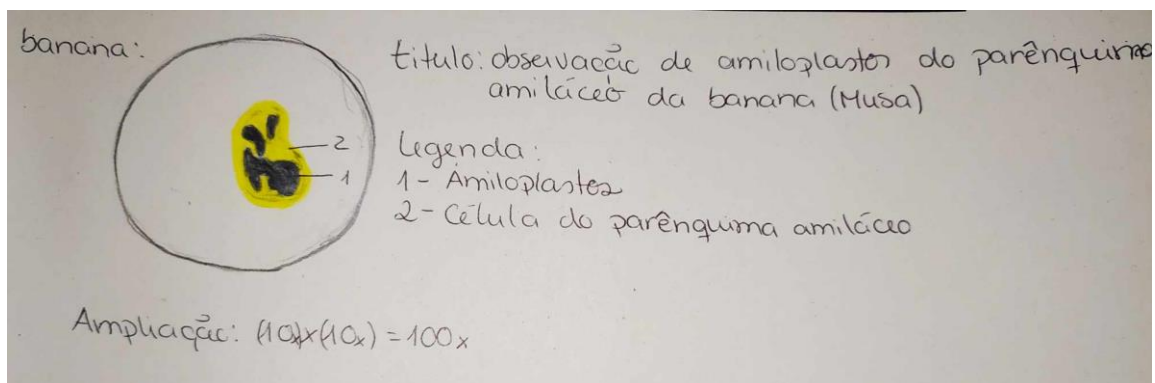 banana:
título: observação de amiloplastos do parênquima
amiláceo da banana (Musa)
2
1
Legenda:
1- Amiloplastos
2- Célula do parênquima amiláceo
Ampliação: (10x)x(10x) = 100x